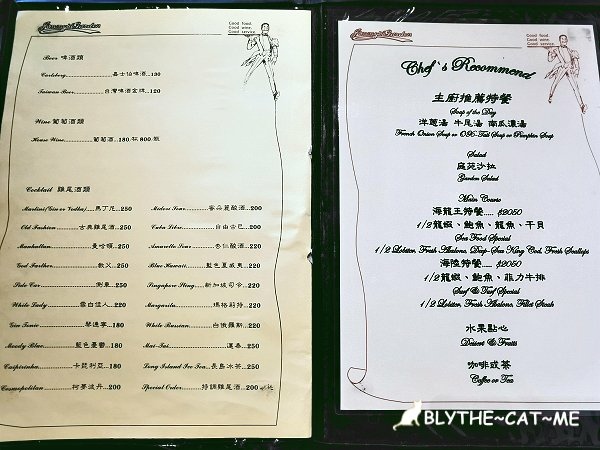 Good food.
Good wine.
Good service.
Beer 啤酒類
Carlsberg 嘉士伯啤酒 130
Taiwan Beer 台灣啤酒金牌 120
Wine 葡萄酒類
House Wine 葡萄酒 180/杯 800/瓶
Cocktail 雞尾酒類
Martini(Gin or Vodka) 馬丁尼 250
Old Fashion 古典雞尾酒 250
Manhattan 曼哈頓 250
God Farther 教父 250
Side Car 側車 250
White Lady 雪白佳人 220
Gin Tonic 琴通寧 180
Moody Blue 藍色憂鬱 180
Caipirinha 卡琵利亞 180
Cosmopolitan 柯夢波丹 200
Midori Sour 蜜朵麗酸酒 200
Cuba Libre 自由古巴 200
Amaretto Sour 杏仁酸酒 220
Blue Hawaii 藍色夏威夷 220
Singapore Sling 新加坡司令 220
Margarita 瑪格莉特 220
White Russian 白俄羅斯 220
Mai-Tai 邁泰 250
Long Island Ice Tea 長島冰茶 250
Special Order 特調雞尾酒 200
Good food.
Good wine.
Good service.
Chef`s Recommend
主廚推薦特餐
Soup of the Day
洋蔥湯 牛尾湯 南瓜濃湯
French Onion Soup or OX-Tail Soup or Pumpkin Soup
Salad
庭苑沙拉
Garden Salad
Main Course
海龍王特餐...... $2050
1/2龍蝦、鮑魚、龍魚、干貝
Sea Food Special
1/2 Lobster, Fresh Abalone, Deep-Sea King Cod, Fresh Scallops
海陸特餐...... $2050
1/2龍蝦、鮑魚、菲力牛排
Surf & Turf Special
1/2 Lobster, Fresh Abalone, Fillet Steak
水果點心
Dessert & Fruits
咖啡或茶
Coffee or Tea
BLYTHE~CAT~ME